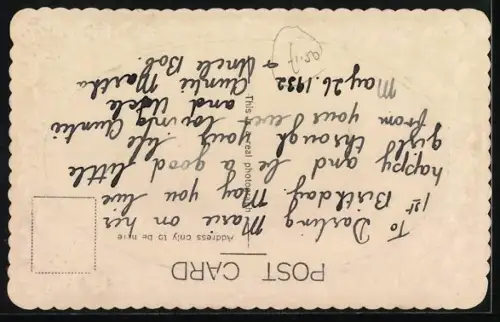 POST CARD
Address only to be
This real photograph
To Darling Marie on her
1st Birthday. May you live
happy and be a good little
girl through your life
from your ever loving Auntie
and Uncle
May 26. 1932 Auntie Martha
+ Uncle Bob.
1.50